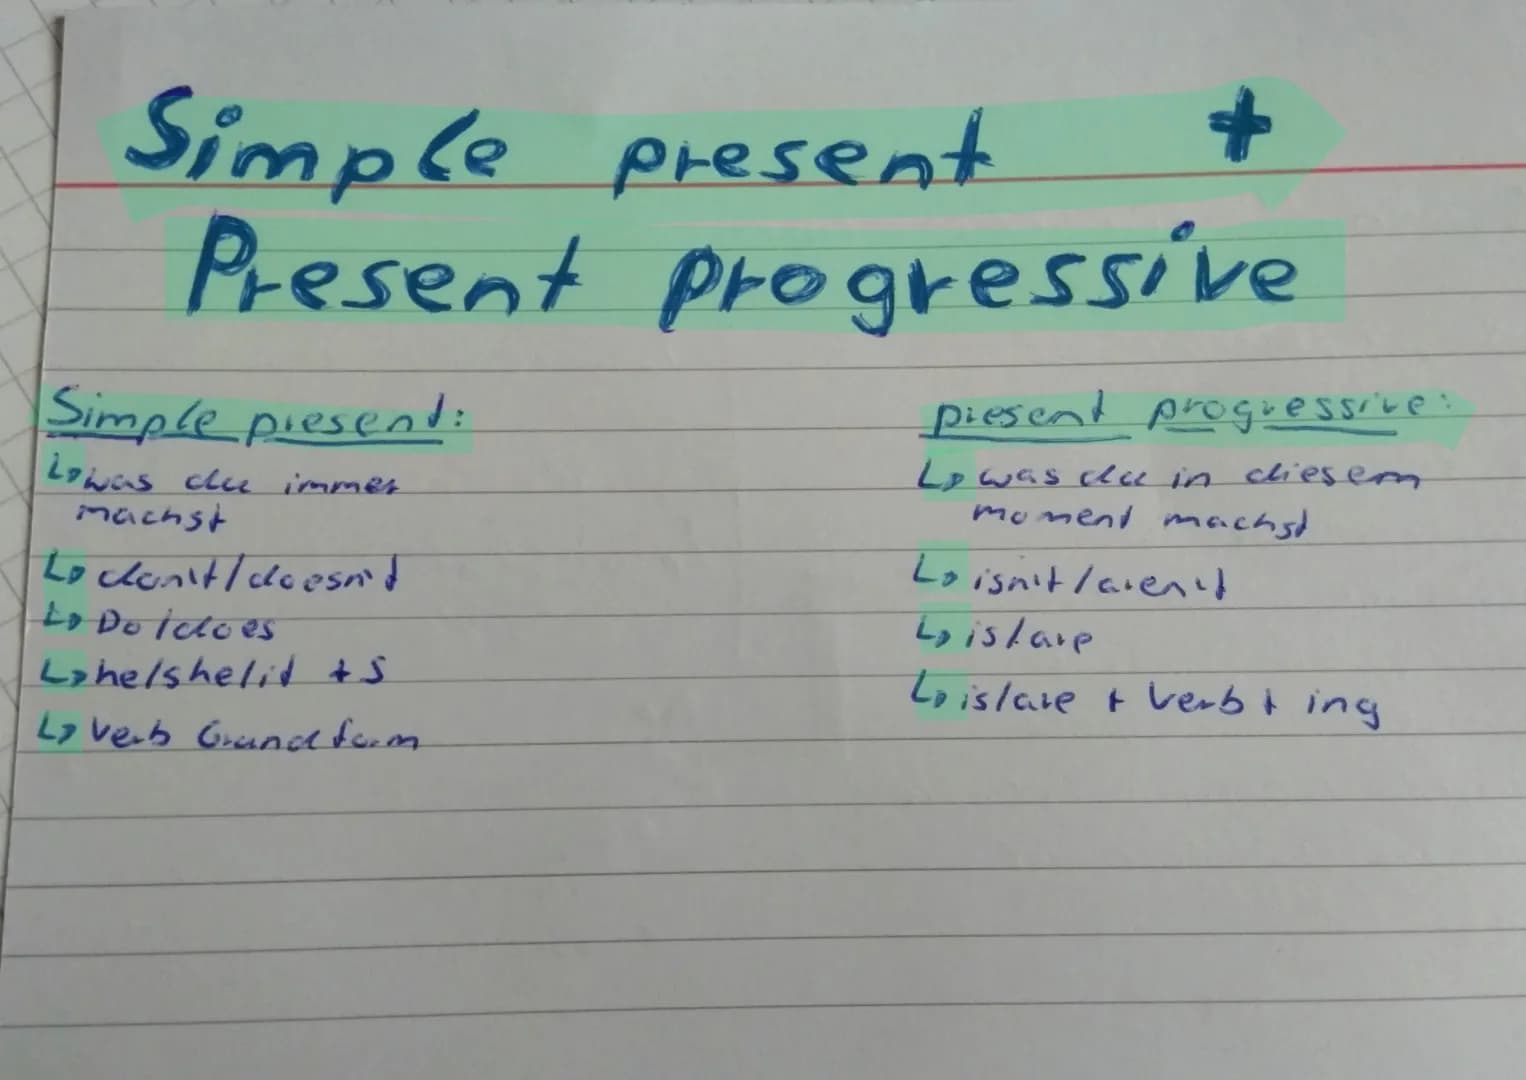 Simple present +
Present progressive
Simple present:
↳ was du immer
machst
↳ don't/doesn't
↳ Do/does
↳ he/she/it + s
↳ Verb Grundform
present progressive:
↳ was du in diesem
moment machst
↳ isn't/aren't
↳ is/are
↳ is/are + Verb + ing